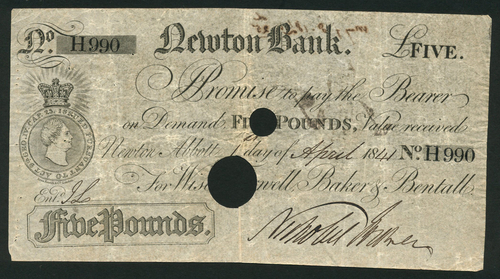 No. H990 Newton Bank. £FIVE.
I Promise to pay the Bearer
on Demand, FIVE POUNDS, Value received
Newton Abbott day of April 1841 No. H990
For Wise, Baker & Bentall.
Entd. JL
Five Pounds.